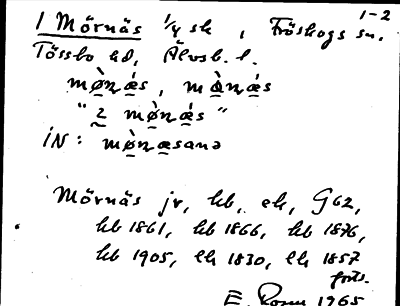 1-2
1 Mörnäs 1/4 sk , Fröskogs sn.
Tössbo hd, Älvsb. l.
mø̀nǽs , mànǽs
" 2 mø̀nǽs "
iN : mø̀næsana
Mörnäs jr, kb, ek, G62,
kb 1861, kb 1866, kb 1876,
kb 1905, lh 1830, lh 1857
forts.
E. Rosen 1965